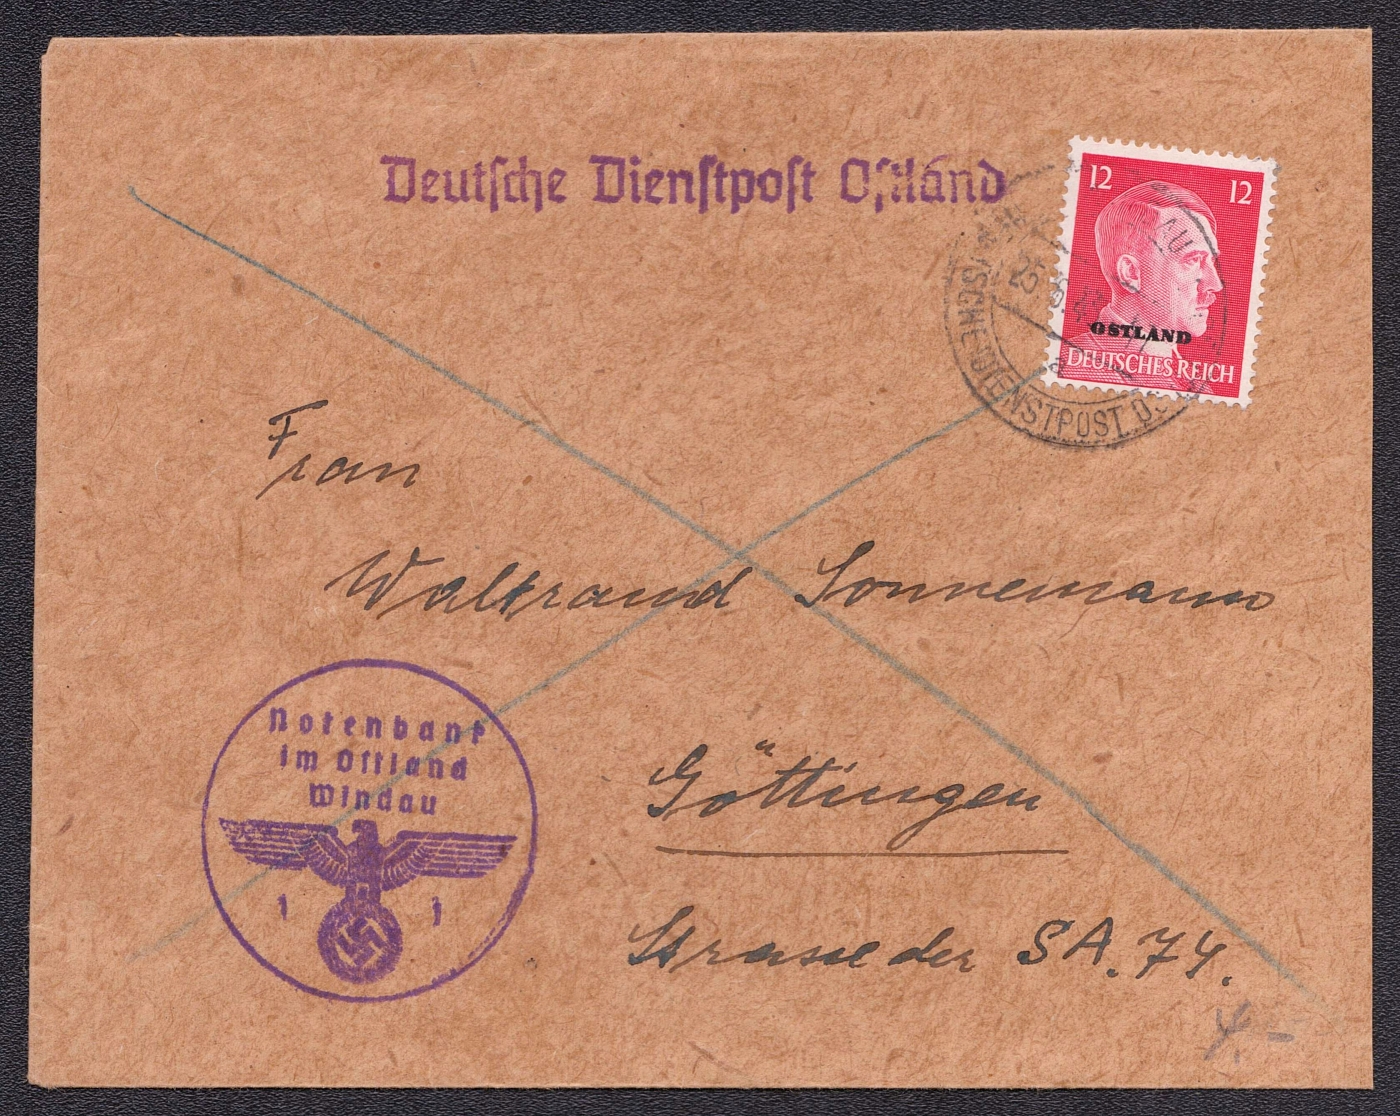 Deutsche Dienstpost Ostland
12 12
OSTLAND
DEUTSCHES REICH
DIENSTPOST
Frau
Waltraud Sonnemann
Göttingen
Strasse der SA. 74.
Notenbank
im Ostland
Windau
1 1